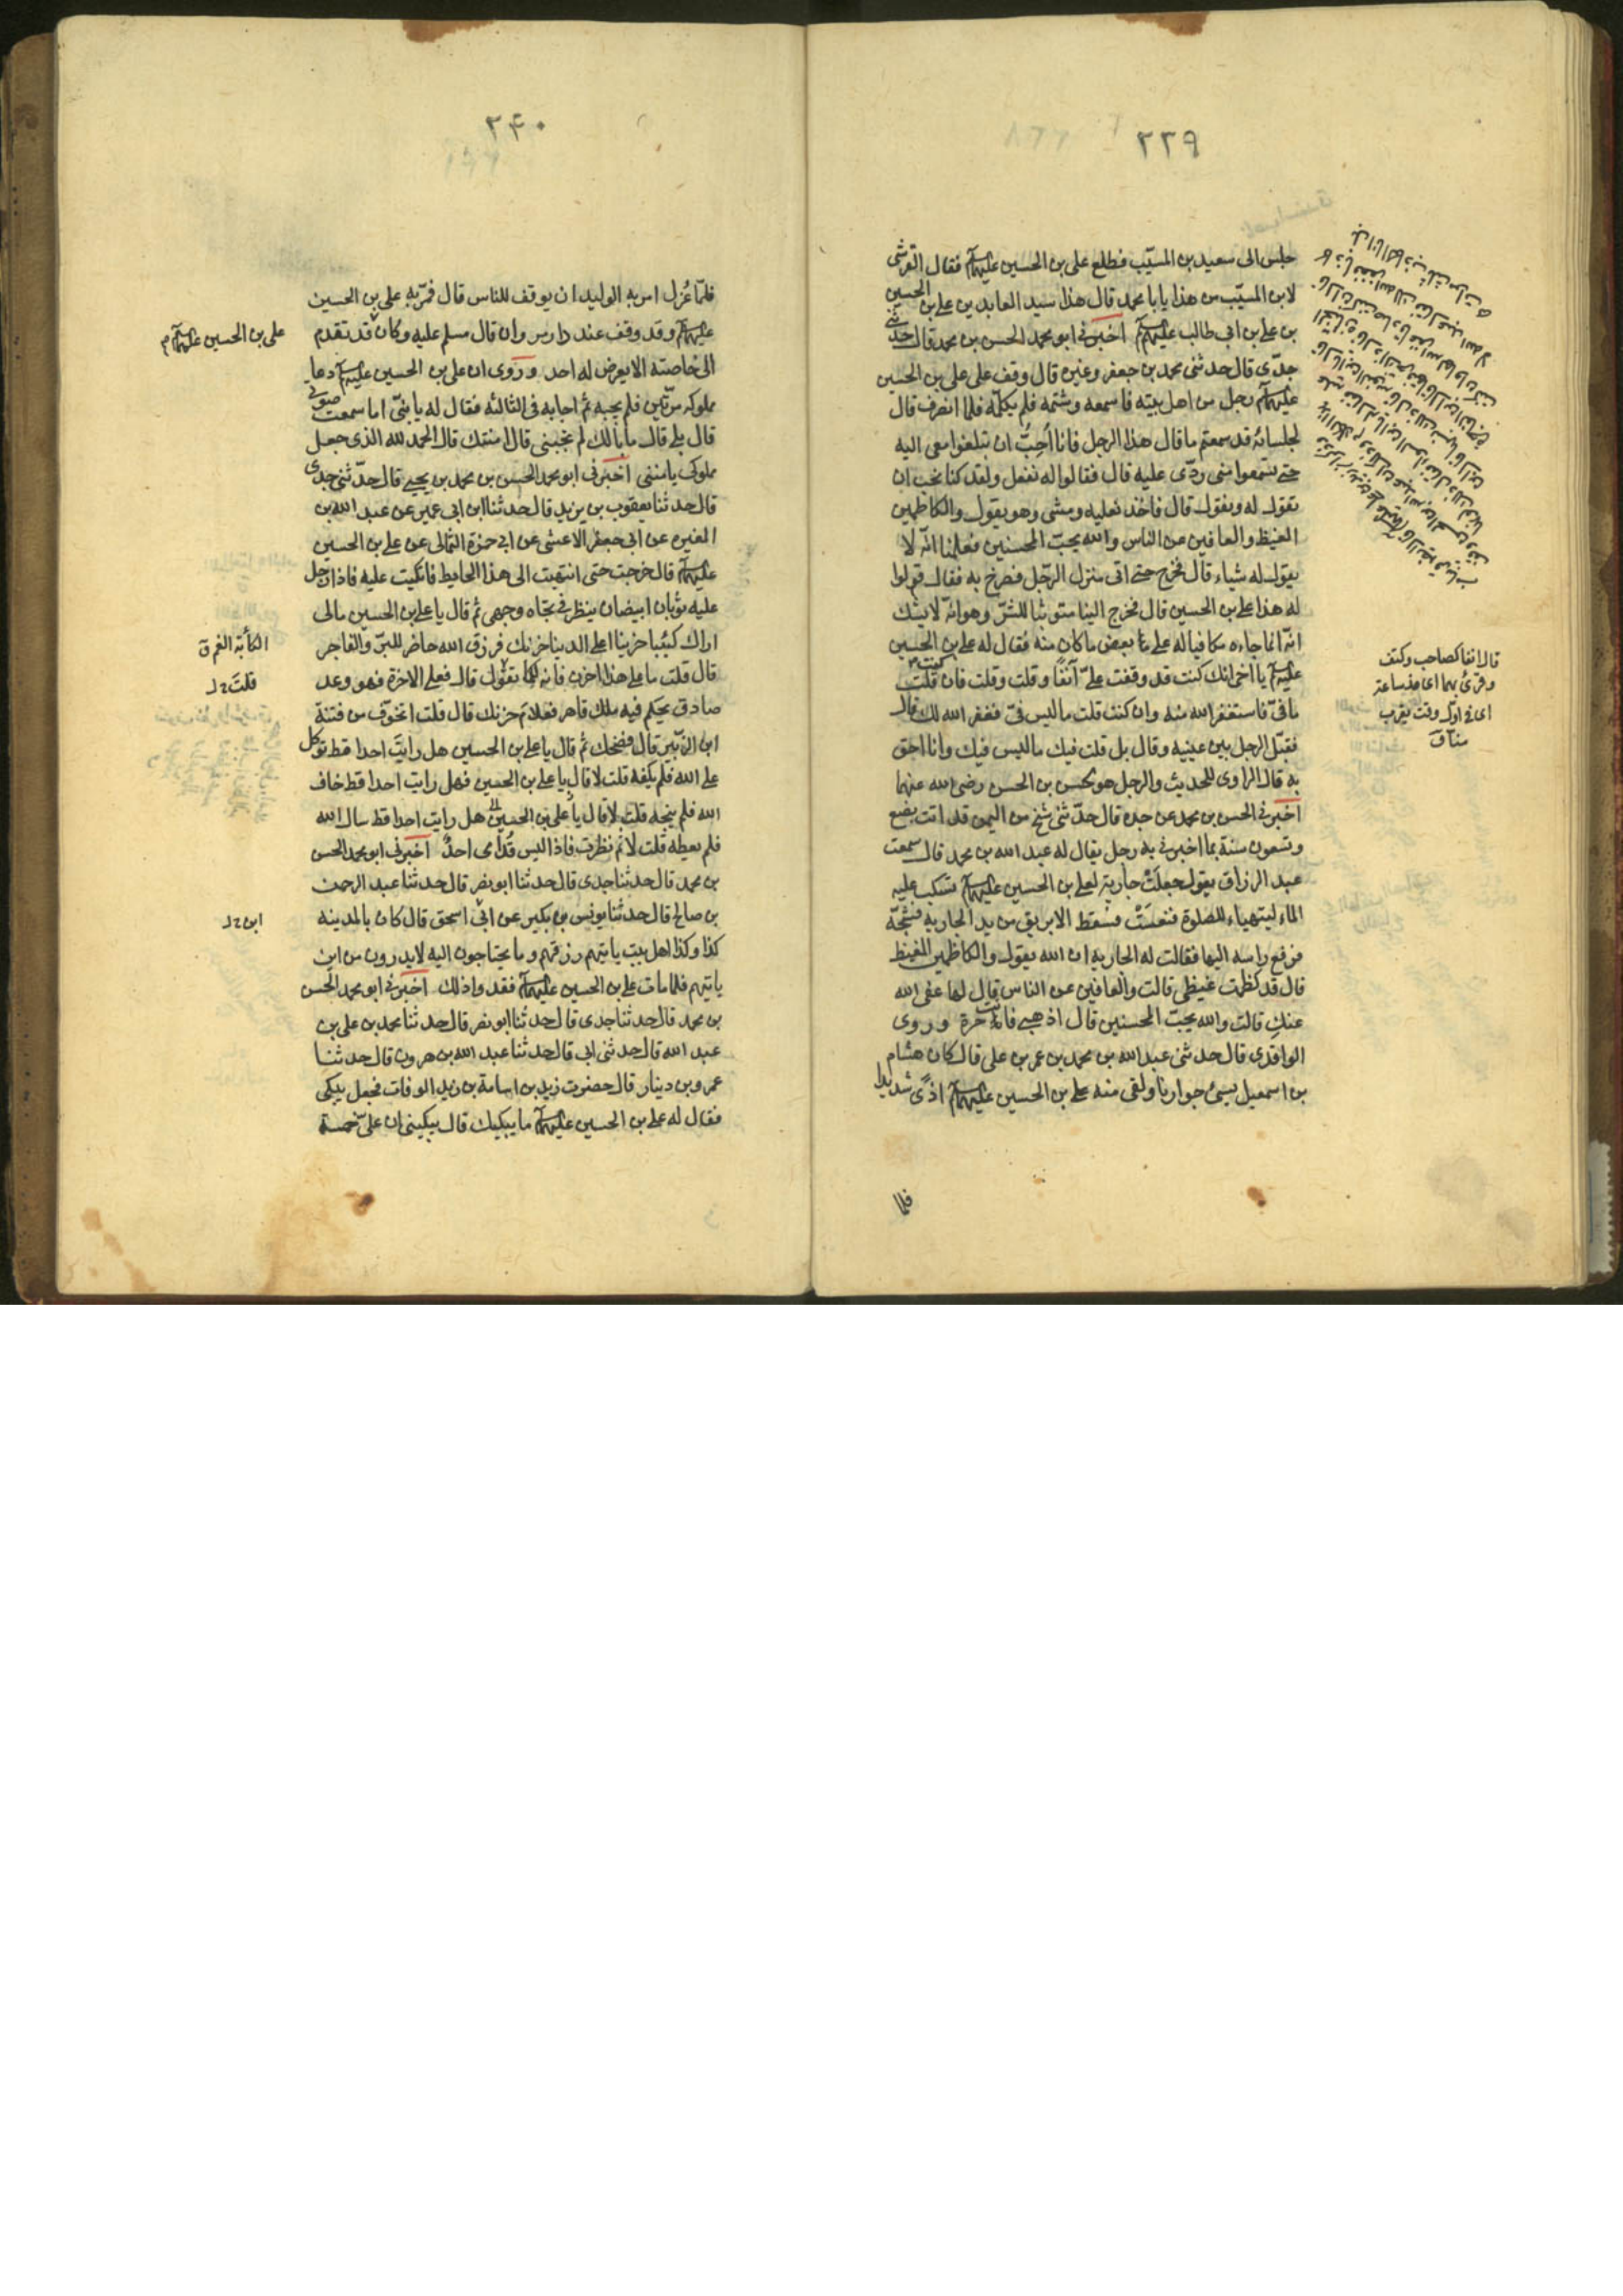 ٢٣٩
جلس الى سعيد بن المسيّب فطلع على بن الحسين عليهما فقال القرشى
لابن المسيّب من هذا يا با محمد قال هذا سيد العابدين على بن الحسين
بن على بن ابى طالب عليهم اخبرنى ابو محمد الحسن بن محمد قال حدثنى
جدّى قال حدثنى محمد بن جعفر وغيره قال وقف على على بن الحسين
عليهما رجل من اهل بيته فاسمعه وشتمه فلم يكلّمه فلما انصرف قال
لجلسائه قد سمعتم ما قال هذا الرجل فانا اُحِبُّ ان تبلغوا معى اليه
حتى تسمعوا منى ردّى عليه قال فقالوا له نفعل ولقد كنا نحب ان
تقول له ونقول قال فاخذ نعليه ومشى وهو يقول والكاظمين
الغيظ والعافين عن الناس والله يحبّ المحسنين فعلمنا انّه لا
يقول له شياء قال فخرج حتى اتى منزل الرّجل فصرخ به فقال قولوا
له هذا على بن الحسين قال فخرج الينا متوثبا للشرّ وهو انّه لا يشك
انّه انما جاءه مكافيا له على بعض ما كان منه فقال له على بن الحسين
عليهما يا اخى انك كنت قد وقفت علىّ آنفًا وقلت وقلت فان كنت قلت
ما فىّ فاستغفر الله منه وان كنت قلت ما ليس فىّ فغفر الله لك قال
فقبّل الرجل بين عينيه وقال بل قلت فيك ما ليس فيك وانا احق
به قال الراوى للحديث والرجل هو الحسن بن الحسن رضى الله عنهما
اخبرنى الحسن بن محمد عن جده قال حدّثنى شيخ من اليمن قد اتت بضع
وتسعون سنة بما اخبرنى به رجل يقال له عبد الله بن محمد قال سمعت
عبد الرزاق يقول جعلَتْ جارية لعلى بن الحسين عليهما تسكب عليه
الماء ليتهياء للصلوة فنعسَتْ فسقط الابريق من يد الجاريه فشجّه
فرفع راسه اليها فقالت له الجاريه ان الله يقول والكاظمين الغيظ
قال قد كظمت غيظى قالت والعافين عن الناس قال لها عفى الله
عنكِ قالت والله يحبّ المحسنين قال اذهبى فانت حرة وروى
الواقدى قال حدثنى عبد الله بن محمد بن عمر بن على قال كان هشام
بن اسمعيل يسئ جوارنا ولقى منه على بن الحسين عليهما اذًى شديدا
فلما
قال انفا كصاحب وكتف
وقرئ بهما اى مذ ساعة
اى فى اوّل وقت يقرب
منا ق
٢۴٠
فلمّا عُزِل امر به الوليد ان يوقف للناس قال فمرّ به على بن الحسين
عليهما وقد وقف عند دار مروان قال مسلم عليه وكان قد تقدم
الى خاصته الا يعرض له احد وروى ان على بن الحسين عليهما دعا
مملوكه مرّتين فلم يجبه ثم اجابه فى الثالثه فقال له يا بنىّ اما سمعت صوتى
قال بلى قال ما بالك لم تجبنى قال امنتك قال الحمد لله الذى جعل
مملوكى يامننى اخبرنى ابو محمد الحسن بن محمد بن يحيى قال حدّثنى جدى
قال حدثنا يعقوب بن يزيد قال حدثنا ابن ابى عمير عن عبد الله بن
المغيره عن ابى جعفر الاعشى عن ابى حمزة الثمالى عن على بن الحسين
عليهما قال خرجت حتى انتهيت الى هذا الحايط فاتكيت عليه فاذا رجل
عليه ثوبان ابيضان ينظر فى تجاه وجهى ثم قال يا على بن الحسين مالى
اراك كئيبا حزينا اعلى الدينا حزنك فرزق الله حاضر للبرّ والفاجر
قال قلت ما على هذا احزن فانه لكما تقول قال فعلى الاخرة فهو وعد
صادق يحكم فيه ملك قاهر فعلامَ حزنك قال قلت اتخوّف من فتنة
ابن الزبّير قال فضحك ثم قال يا على بن الحسين هل رايت احدا قط توكل
على الله فلم يكفه قلت لا قال يا على بن الحسين فهل رايت احدا قط خاف
الله فلم ينجه قلت لا قال يا على بن الحسين هل رايت احدا قط سال الله
فلم يعطه قلت لا ثم نظرت فاذا ليس قُدامى احدٌ اخبرنى ابو محمد الحسن
بن محمد قال حدثنا جدى قال حدثنا ابو نصر قال حدثنا عبد الرحمن
بن صالح قال حدثنا يونس بن بكير عن ابى اسحق قال كان بالمدينه
كذا وكذا اهل بيت ياتيهم رزقهم وما يحتاجون اليه لا يدرون من اين
ياتيهم فلما مات على بن الحسين عليهما فقدوا ذلك اخبرنى ابو محمد الحسن
بن محمد قال حدثنا جدى قال حدثنا ابو نصر قال حدثنا محمد بن على بن
عبد الله قال حدثنى ابى قال حدثنا عبد الله بن هرون قال حدثنا
عمرو بن دينار قال حضرت زيد بن اسامة بن زيد الوفات فجعل يبكى
فقال له على بن الحسين عليهما ما يبكيك قال يبكينى ان علىّ خمسة
على بن الحسين عليهما م
الكأبة الغم ق
قلتَ
ابن